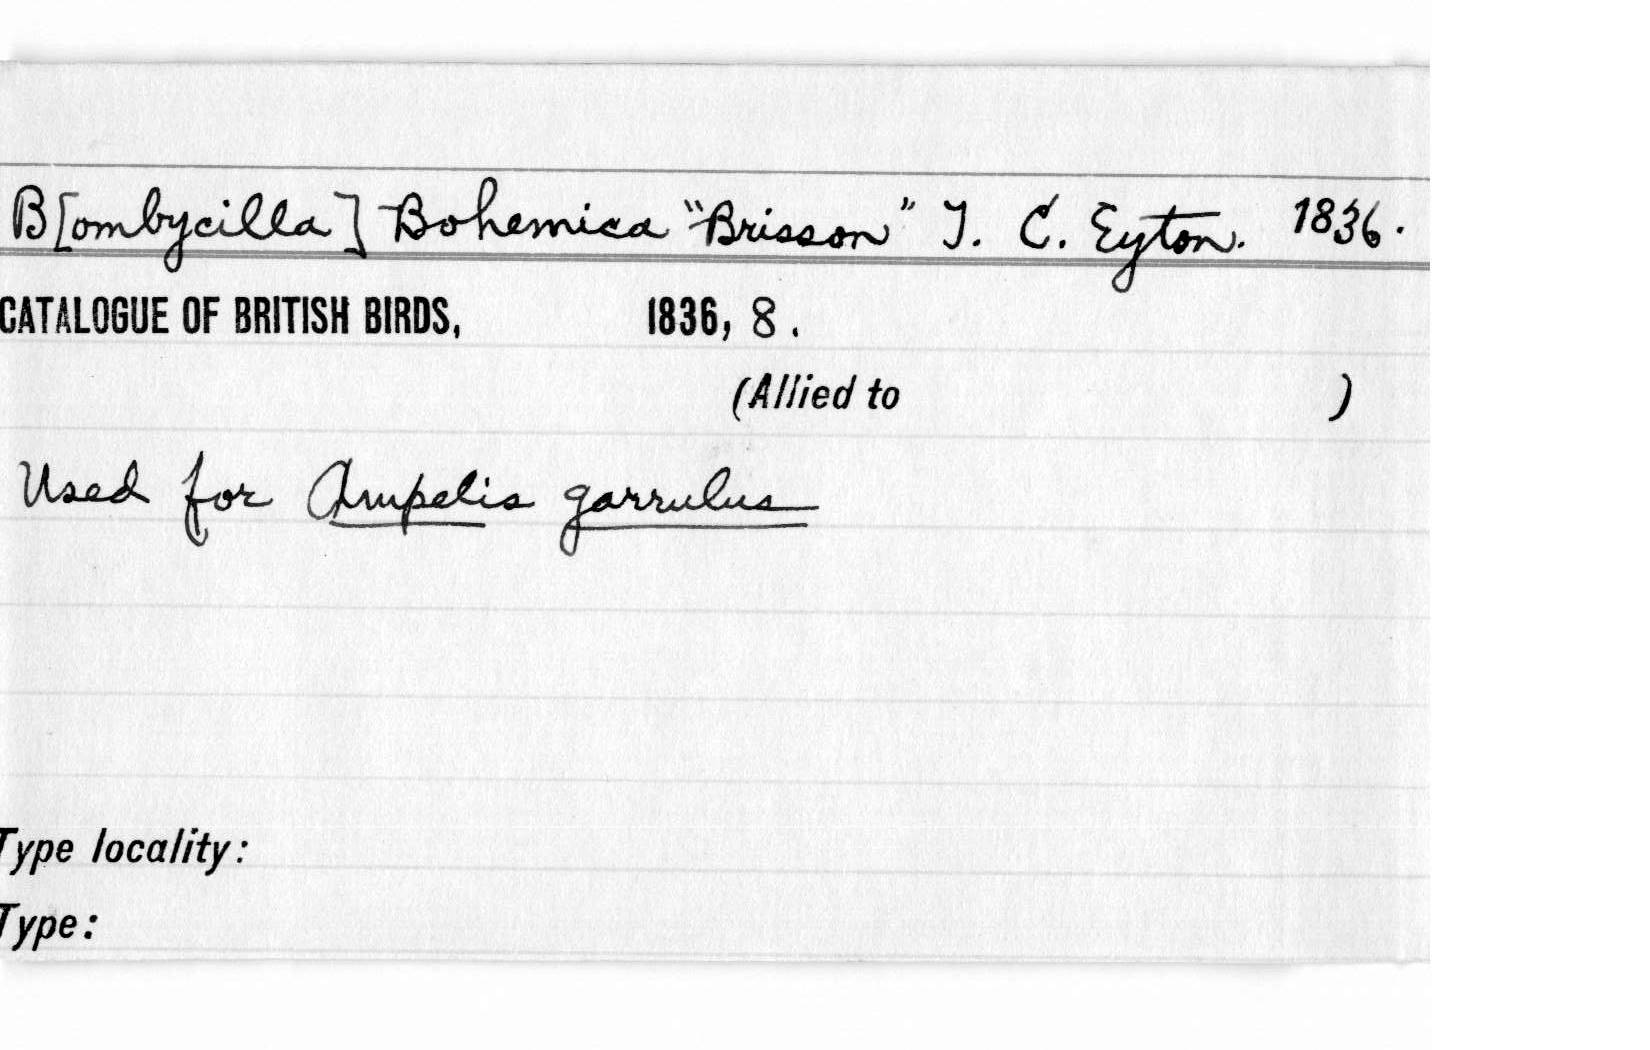 B[ombycilla] Bohemica "Brisson" T. C. Eyton. 1836.
CATALOGUE OF BRITISH BIRDS, 1836, 8.
(Allied to )
Used for Ampelis garrulus
Type locality:
Type: